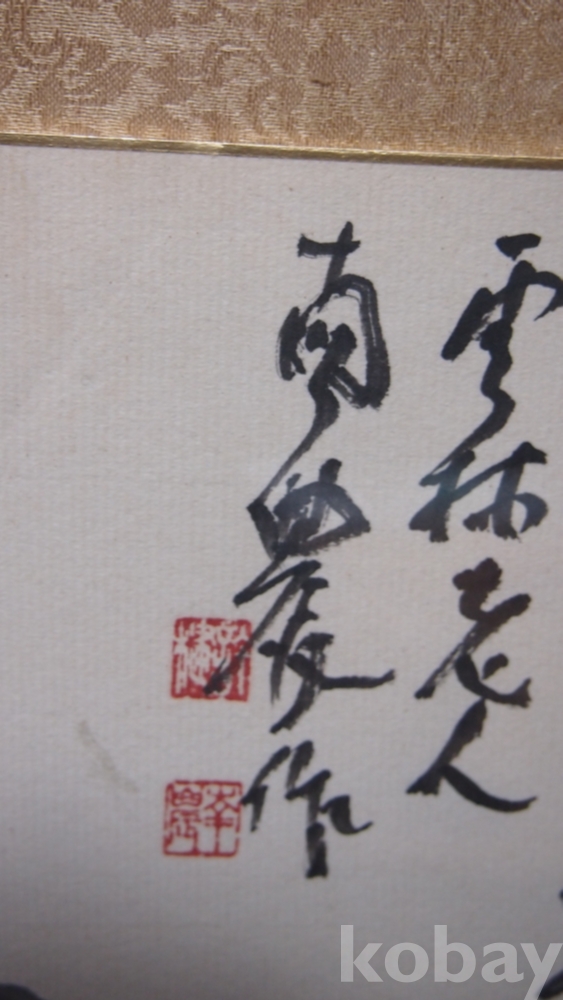 雲林老人
南農作
kobay